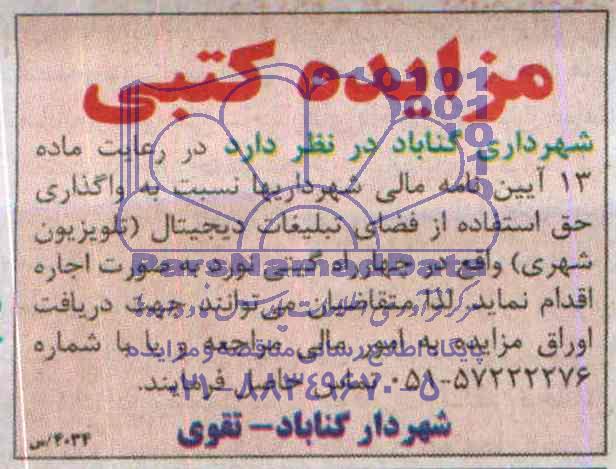 مزایده کتبی
شهرداری گناباد در نظر دارد در رعایت ماده
۱۳ آیین نامه مالی شهرداریها نسبت به واگذاری
حق استفاده از فضای تبلیغات دیجیتال (تلویزیون
شهری) واقع در چهارراه گیتی نورد به صورت اجاره
اقدام نماید. لذا متقاضیان می‌توانند جهت دریافت
اوراق مزایده به امور مالی مراجعه و یا با شماره
۰۵۸-۵۷۲۲۲۲۷۶ تماس حاصل فرمایند.
شهردار گناباد- تقوی
۴۰۳۴/س
ParsNamadData
پایگاه اطلاع رسانی مناقصه و مزایده
۰۲۱-۸۸۳۴۹۶۷۰-۵